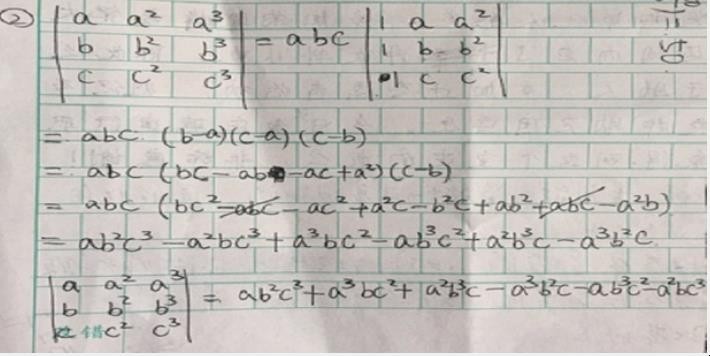 ② | a a² a³ | = abc | 1 a a² |
| b b² b³ | | 1 b b² |
| c c² c³ | | 1 c c² |
= abc (b-a)(c-a)(c-b)
= abc (bc-ab-ac+a²)(c-b)
= abc (bc²-abc-ac²+a²c-b²c+ab²+abc-a²b)
= ab²c³-a²bc³+a³bc²-ab³c²+a²b³c-a³b²c
| a a² a³ |
| b b² b³ | = ab²c³+a³bc²+a²b³c-a³b²c-ab³c²-a²bc³
| 错 c² c³ |